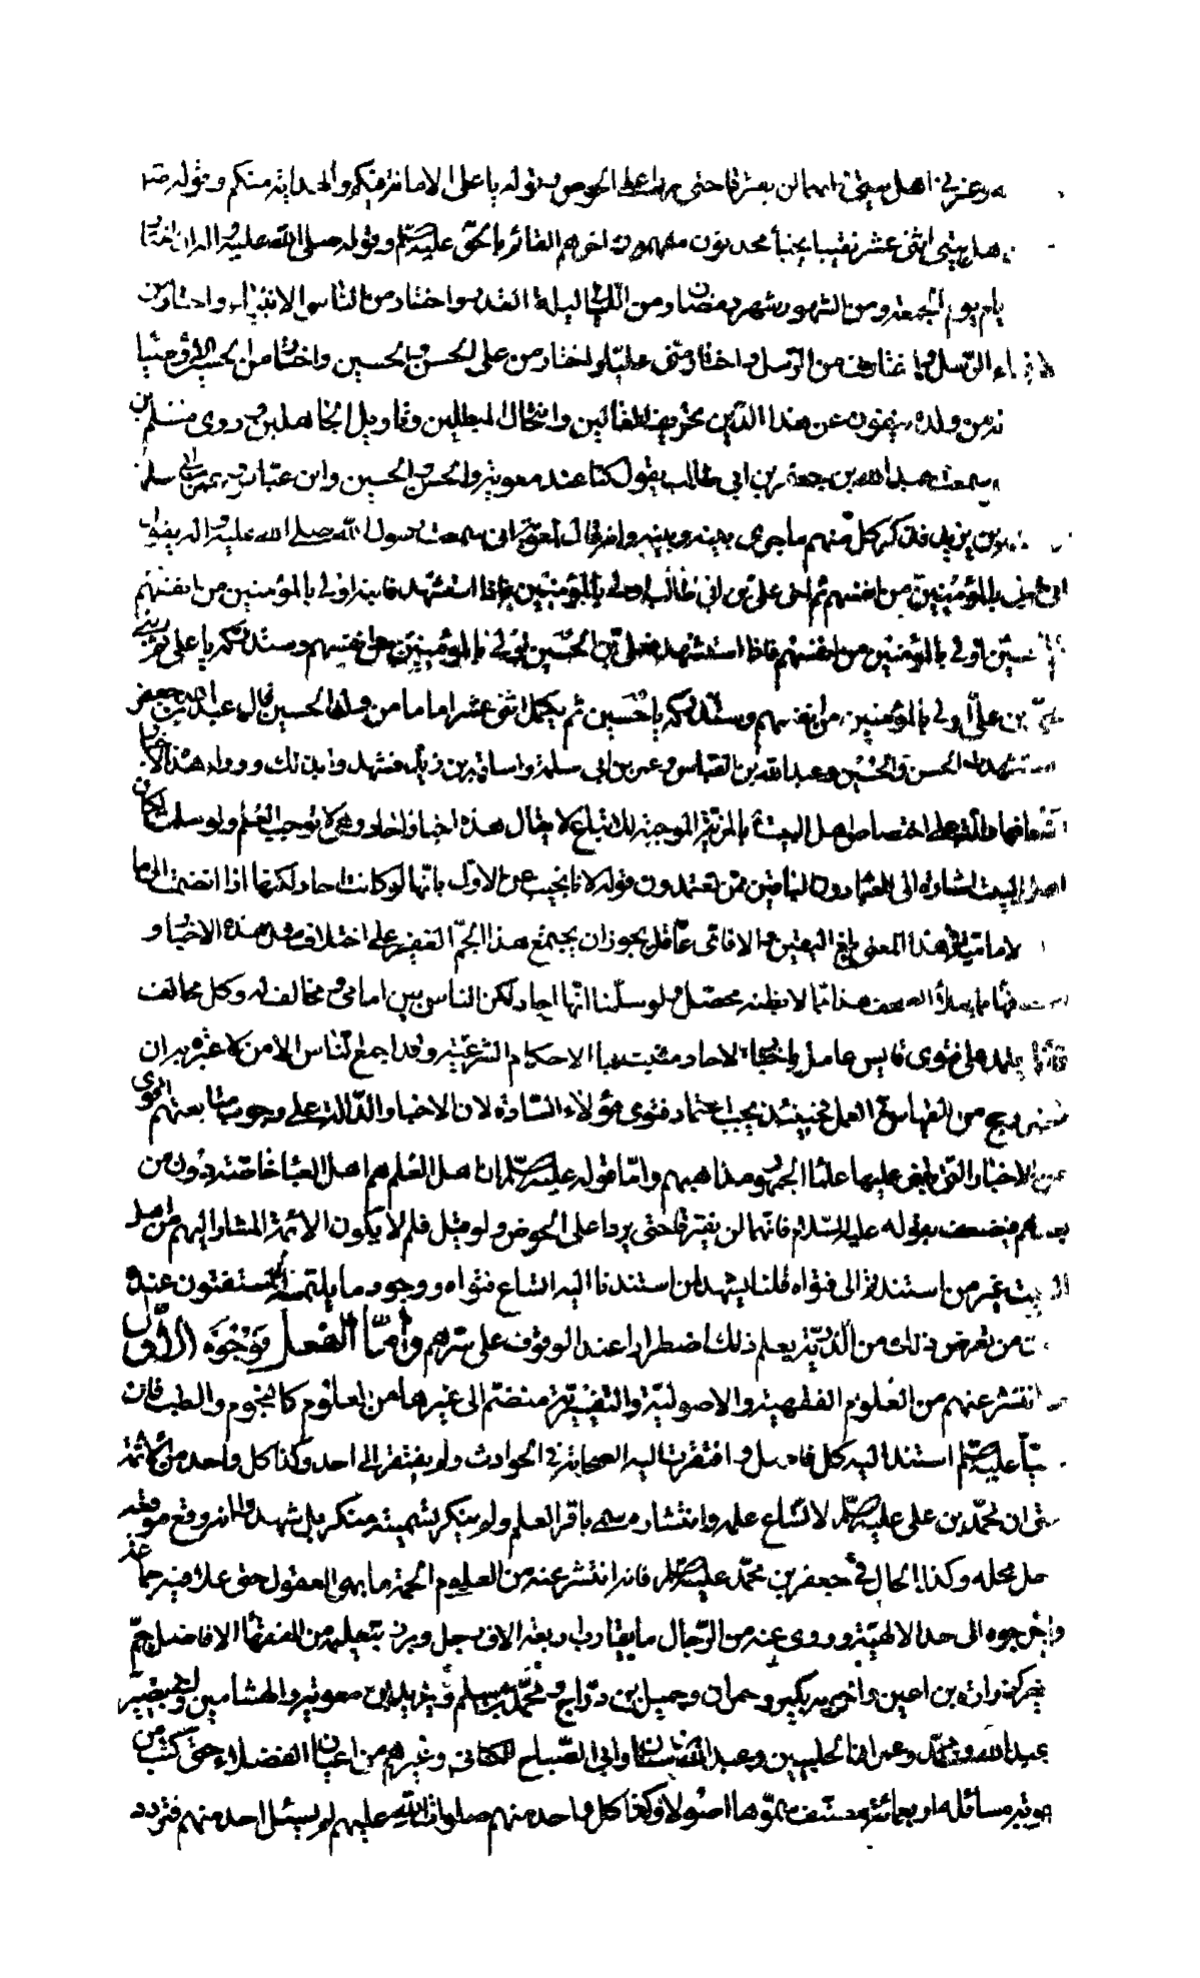 وعترتي اهل بيتي فانهما لن يفترقا حتى يردا على الحوض وبقوله يا على الامامة فيكم والهداية منكم وقوله صلى
اهل بيتي اثنى عشر نقيبا نجباء محدثون مفهمون اخرهم القائم بالحق عليه السلم وقوله صلى الله عليه واله ان الله اختار
الايام يوم الجمعة ومن الشهور شهر رمضان ومن الليالى ليلة القدر واختار من الناس الانبياء واختار من
الانبياء الرسل واختارنى من الرسل واختار منى عليا واختار من على الحسن والحسين واختار من الحسين الاوصياء
من ولده ينفون عن هذا الدين تحريف الغالين وانتحال المبطلين وتاويل الجاهلين وروى سليم بن
سمعت عبد الله بن جعفر بن ابى طالب يقول كنا عند معوية والحسن والحسين وابن عباس وعمر بن ابى سلمة
بن زيد فذكر كل منهم ما جرى بينه وبينه وانه قال لمعوية انى سمعت رسول الله صلى الله عليه واله يقول
اولى بالمؤمنين من انفسهم ثم اخى على بن ابى طالب اولى بالمؤمنين فاذا استشهد فابنه اولى بالمؤمنين من انفسهم
الحسين اولى بالمؤمنين من انفسهم فاذا استشهد فعلى بن الحسين اولى بالمؤمنين من انفسهم وستدركه يا على ثم ابنى
محمد بن على اولى بالمؤمنين من انفسهم وستدركه يا حسين ثم يكمل اثنى عشر اماما من ولد الحسين قال عبد الله بن جعفر
استشهدت الحسن والحسين وعبد الله بن العباس وعمر بن ابى سلمة واسامة بن زيد فشهدوا بذلك ورواة هذا
على اختصاص اهل البيت بالمزية الموجبة للاتباع لا يقال هذه اخبار احاد وهى لا توجب العلم ولو سلمت لكان
اهل البيت اشارة الى المشار دون الباقين ممن تعتمدون قوله لانا نجيب عن الاول بانها لو كانت احاد لكنها اذا انضمت الى ما
الامامية في هذا المعنى بلغ اليقين والا فاى عاقل يجوز ان يجتمع هذا الجم الغفير على اختلاف هذه الاخبار و
هذا مما لا يظنه محصل ولو سلمنا انها احاد لكن الناس بين امامى ومخالف له وكل مخالف
فتوى قايس عامل باخبار الاحاد مثبت بها الاحكام الشرعية وقد اجمع الناس الا من لا عبرة به ان
من القياس في العمل فحينئذ يجب اعتماد فتوى هؤلاء السادة لان الاخبار الدالة على وجوب متابعتهم اقوى
من الاخبار التى بنى عليها علماء الجمهور مذاهبهم واما قوله عليه السلم ان اهل العلم هم اهل العبا خاصة دون من
بعدهم فيضعف بقوله عليه السلام فانهما لن يفترقا حتى يردا على الحوض ولو قيل فلم لا يكون الائمة المشار اليهم من اهل
البيت غير من استندتم الى فتواه قلنا يشهد لمن استندنا اليه اتساع فتواه ووجود ما يلتمسه المستفتون عنده
من تعرض لذلك من الذرية يعلم ذلك اضطرارا عند الوقوف على سيرهم واما الفعل فوجوه الاول
انتشر عنهم من العلوم الفقهية والاصولية والتفسيرية منضم الى غيرها من العلوم كالنجوم والطب فان
عليا عليه السلم استند اليه كل فاضل وافتقرت اليه الصحابة في الحوادث ولم يفتقر الى احد وكذا كل واحد من الائمة
حتى ان محمد بن على عليه السلم لاتساع علمه وانتشاره سمى باقر العلم ولم ينكر تسميته منكر بل شهد له انه وقع موقعه
حل محله وكذا الحال في جعفر بن محمد عليه السلم فانه انتشر عنه من العلوم الجمة ما بهر العقول حتى غلا فيه جماعة
واخرجوه الى حد الالهية وروى عنه من الرجال ما يقارب اربعة الاف رجل وبرز بتعليمه من الفقهاء الافاضل جم
غفير كزرارة بن اعين واخويه بكير وحمران وجميل بن دراج ومحمد بن مسلم وبريد بن معوية والهشامين وابى بصير
عبيد الله ومحمد وعمران الحلبيين وعبد الله بن سنان وابى الصباح الكنانى وغيرهم من اعيان الفضلاء حتى كتب من
اجوبة مسائله اربعمائة مصنف سموها اصولا وكذا كل واحد منهم صلوات الله عليهم لم يسئل احد منهم فتردد